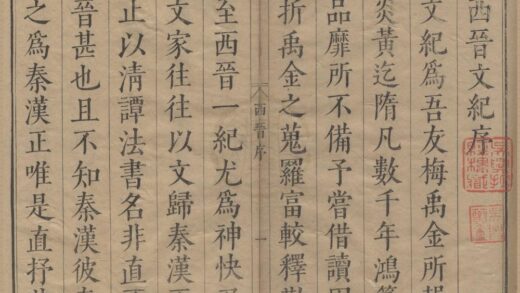 西晉文紀序
文紀爲吾友梅禹金所
炎黃迄隋凡數千年鴻
品靡所不備予嘗借讀因
折禹金之蒐羅富較釋
西晉序
一
至西晉一紀尤爲神快
文家往往以文歸秦漢
正以清譚法書名非直
晉甚也且不知秦漢彼
之爲秦漢正唯是直抒